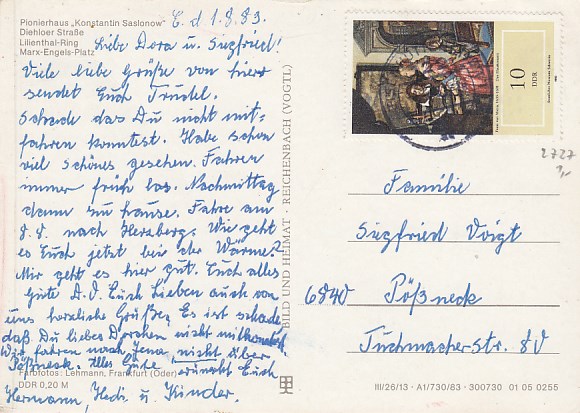 Pionierhaus „Konstantin Saslonow"
Diehloer Straße
Lilienthal-Ring
Marx-Engels-Platz
E. d. 1.8.83.
Liebe Dora u. Siegfried!
Viele liebe Grüße von hier
sendet Euch Trudel.
Schade das Du nicht mit-
fahren konntest. Habe schon
viel Schönes gesehen. Fahren
immer früh los. Nachmittag
dann zu hause. Fahre am
8.8. nach Herzberg. Wie geht
es Euch jetzt bei der Wärme?
Mir geht es hier gut. Euch alles
Gute A.D. Euch Lieben auch von
uns herzliche Grüße. Es ist schade,
daß Du liebes Dorchen nicht mitkonntest.
Wir fahren nach Jena, nicht über
Pößneck. Alles Gute wünscht Euch
Hermann, Hedi u. Kinder.
Farbfotos: Lehmann, Frankfurt (Oder)
DDR 0,20 M
BILD UND HEIMAT · REICHENBACH (VOGTL)
10
DDR
2727
1,-
Familie
Siegfried Voigt
6840 Pößneck
Tuchmacherstr. 80
III/26/13 · A1/730/83 · 300730 01 05 0255